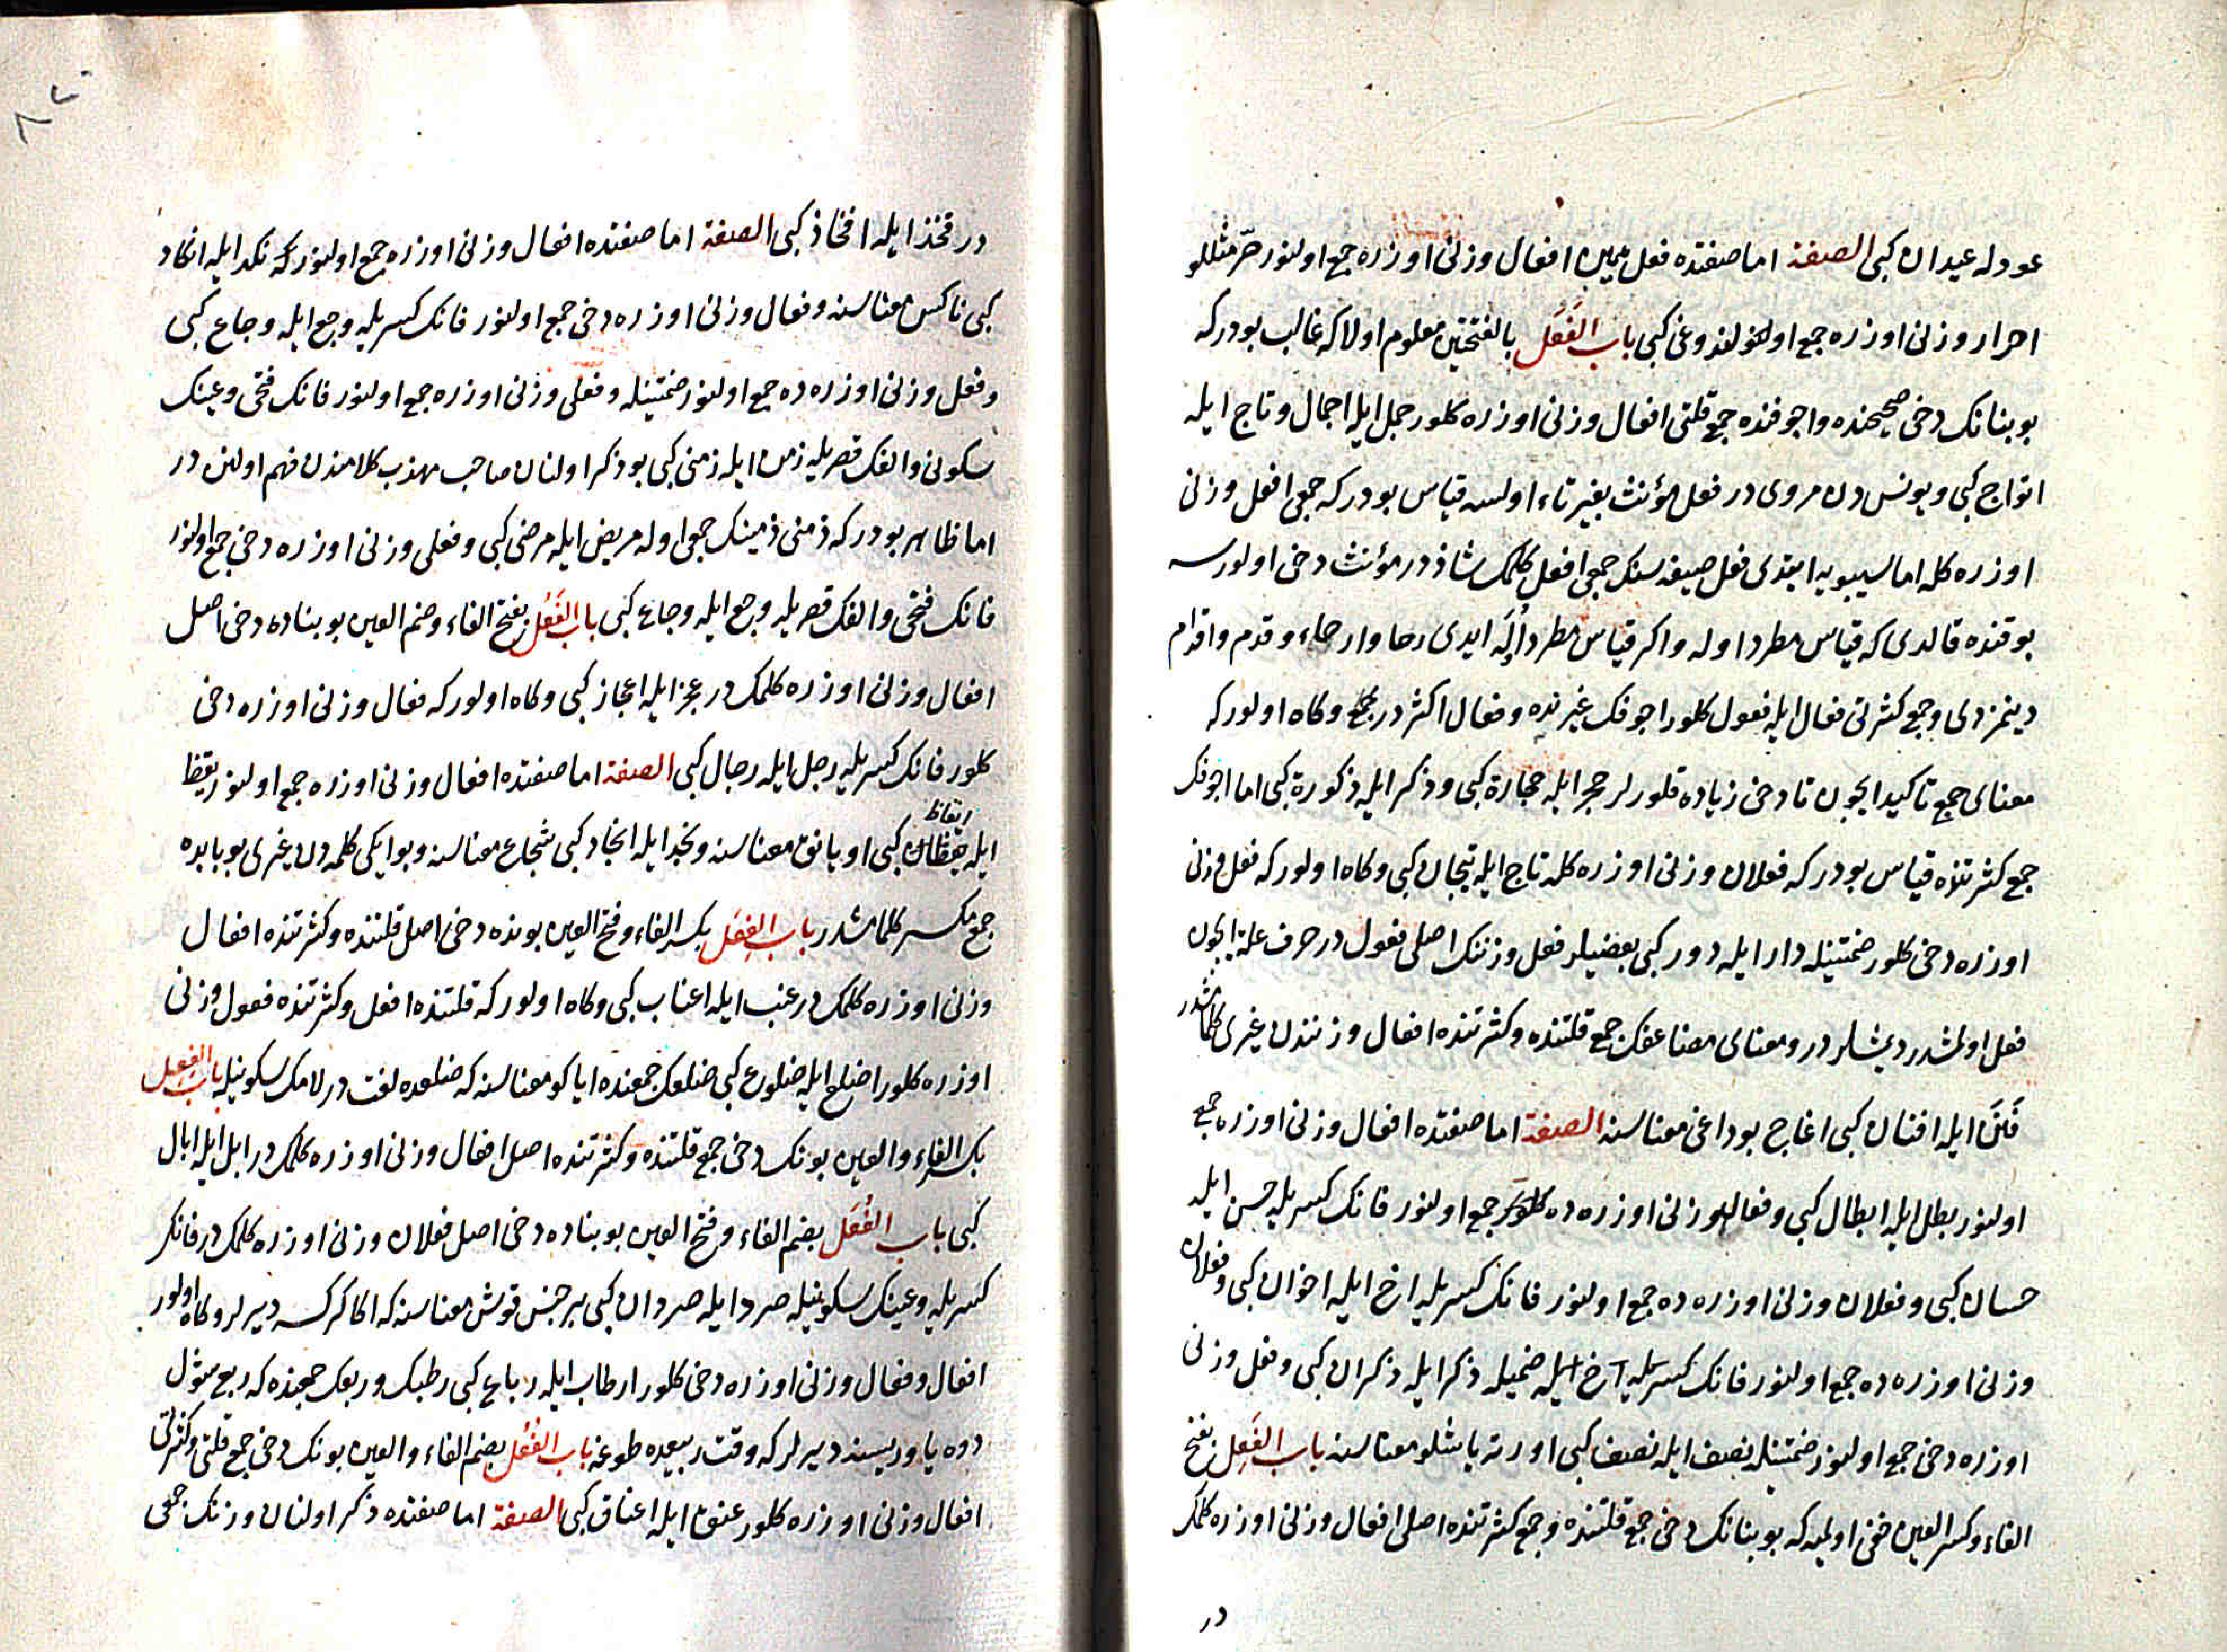 عودله عيدان كبى الصفة اما صفتده فعل يمين افعال وزنى اوزره جمع اولنور حرّ مثللو
احرار وزنى اوزره جمع اولنور لغز وعى كبى باب الفَعَل بالفتحتين معلوم اولاكه غالب بودركه
بو بنانك دخى صحيحنده واجوفنده جمع قلتى افعال وزنى اوزره كلور جمل ايله اجمال وتاج ايله
اتواج كبى ويونس دن مروى در فعل مؤنث بغير تاء اولسه قياس بودركه جمعى افعل وزنى
اوزره كله اما سيبويه ايتدى فعل صيغه سنك جمعى افعل كلمك شاذدر مؤنث دخى اولورسه
بو قنده قالدى كه قياس مطرد اوله واكر قياس مطرد اوله ايدى رحا وارحاء وقدم واقدام
دينمزدى وجمع كثرتى فعال ايله فعول كلور اجوفك غيرنده وفعال اكثردر وكاه اولوركه
معناى جمع تاكيد ايچون تا دخى زياده قلورلر حجر ايله حجارة كبى وذكر ايله ذكورة كبى اما اجوفك
جمع كثرتنده قياس بودركه فعلان وزنى اوزره كله تاج ايله تيجان كبى وكاه اولوركه فعل وزنى
اوزره دخى كلور ضمتينله دار ايله دور كبى بعضيلر فعل وزننك اصلى فعول در حرف علة ايچون
فعل اولمشدر ديمشلر در ومعناى مضاعفك جمع قلتنده وكثرتنده افعال وزنندن غيرى كلمامشدر
فَنَن ايله افنان كبى اغاج بوداغى معناسنه الصفة اما صفتده افعال وزنى اوزره جمع
اولنور بطل ايله ابطال كبى وفعال وزنى اوزره ده جمع اولنور فانك كسريله حسن ايله
حسان كبى وفعلان وزنى اوزره ده جمع اولنور فانك كسريله اخ ايله اخوان كبى وفعلان
وزنى اوزره ده جمع اولنور فانك ضميله ذكر ايله ذكران كبى وفعل وزنى
اوزره دخى جمع اولنور ضمتينله نصف ايله نصف كبى اورته ياشلو معناسنه باب الفَعِل بفتح
الفاء وكسر العين خفى اولميه كه بو بنانك دخى جمع قلتنده وجمع كثرتنده اصلى افعال وزنى اوزره كلمك
در
در فخذ ايله افخاذ كبى الصفة اما صفتده افعال وزنى اوزره جمع اولنور كه نكد ايله انكاد
كبى ناكس معناسنه وفعال وزنى اوزره دخى جمع اولنور فانك كسريله وجع ايله وجاع كبى
وفعل وزنى اوزره ده جمع اولنور ضمتينله وفعلى وزنى اوزره جمع اولنور فانك فتحى وعينك
سكونى والفك قصريله زمن ايله زمنى كبى بو ذكر اولنان صاحب مهذب كلامندن فهم اولنن در
اما ظاهر بودر كه زمنى زمينك جمعى اوله مريض ايله مرضى كبى وفعلى وزنى اوزره دخى جمع اولنور
فانك فتحى والفك قصريله وجع ايله وجاعى كبى باب الفَعُل بفتح الفاء وضم العين بو بناده دخى اصل
افعال وزنى اوزره كلمك در عجز ايله اعجاز كبى وكاه اولور كه فعال وزنى اوزره دخى
كلور فانك كسريله رجل ايله رجال كبى الصفة اما صفتده افعال وزنى اوزره جمع اولنور يقظ
ايله ايقاظ كبى اويانق معناسنه ونجد ايله انجاد كبى شجاع معناسنه وبو ايكى كلمه دن غيرى بو بابده
جمع مكسر كلمامشدر باب الفِعَل بكسر الفاء وفتح العين بونده دخى اصل قلتنده وكثرتنده افعال
وزنى اوزره كلمك در عنب ايله اعناب كبى وكاه اولور كه قلتنده افعل وكثرتنده فعول وزنى
اوزره كلور اضلع ايله ضلوع كبى ضلعك جمعنده اياكو معناسنه كه ضلعده لغت در لامك سكونيله باب الفِعِل
بكسر الفاء والعين بونك دخى جمع قلتنده وكثرتنده اصل افعال وزنى اوزره كلمك در ابل ايله ابال
كبى باب الفُعَل بضم الفاء وفتح العين بو بناده دخى اصل فعلان وزنى اوزره كلمك در فانك
كسريله وعينك سكونيله صرد ايله صردان كبى بر جنس قوش معناسنه كه اكا كركسه ديرلر وكاه اولور
افعال وفعال وزنى اوزره دخى كلور ارطاب ايله رباع كبى رطبك وربعك جمعنده كه ربع شول
دوه ياوريسنه ديرلر كه وقت ربيعده طوغه باب الفُعُل بضم الفاء والعين بونك دخى جمع قلتى وكثرتى
افعال وزنى اوزره كلور عنق ايله اعناق كبى الصفة اما صفتده ذكر اولنان وزنك جمعى